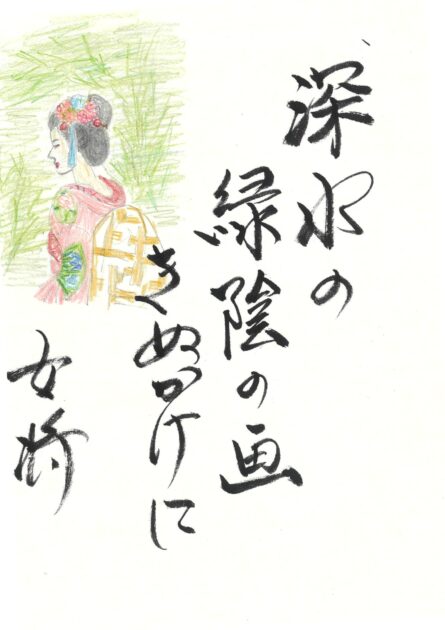 深水の
緑陰の画
きぬかけに
女将